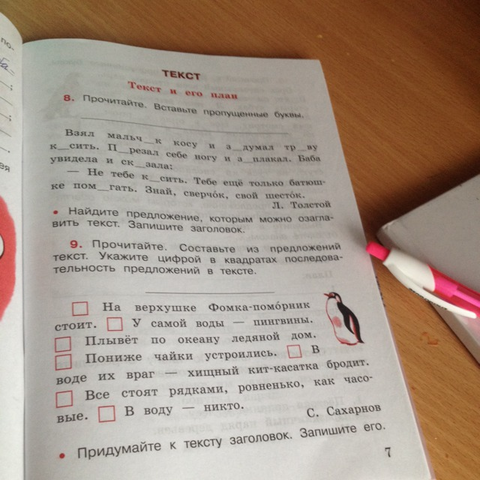 ТЕКСТ
Текст и его план
8. Прочитайте. Вставьте пропущенные буквы.
Взял мальч_к косу и з_думал тр_ву
к_сить. П_резал себе ногу и з_плакал. Баба
увидела и ск_зала:
— Не тебе к_сить. Тебе ещё только батюш-
ке пом_гать. Знай, сверчо́к, свой шесто́к.
Л. Толстой
• Найдите предложение, которым можно озагла-
вить текст. Запишите заголовок.
9. Прочитайте. Составьте из предложений
текст. Укажите цифрой в квадратах последова-
тельность предложений в тексте.
□ На верхушке Фомка-помо́рник
стоит. □ У самой воды — пингвины.
□ Плывёт по океану ледяной дом.
□ Пониже чайки устроились. □ В
воде их враг — хищный кит-касатка бродит.
□ Все стоят рядками, ровненько, как часо-
вые. □ В воду — никто.
С. Сахарнов
• Придумайте к тексту заголовок. Запишите его.
7